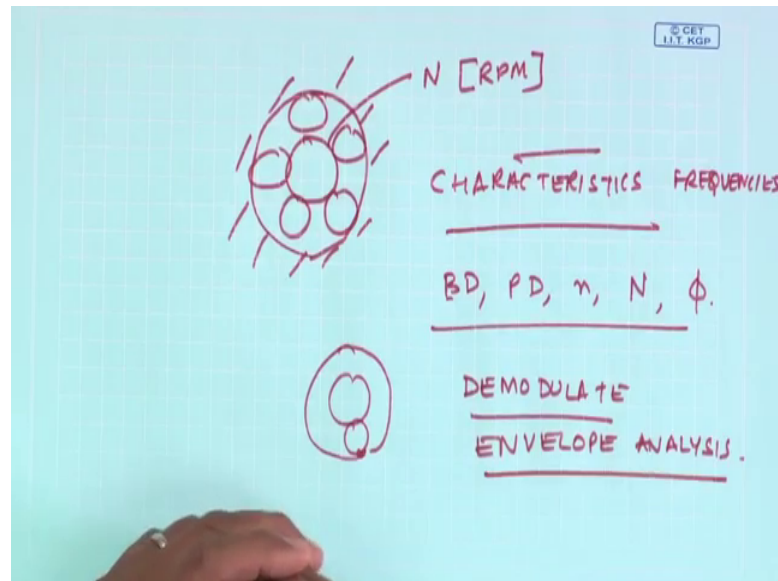 © CET
I.I.T. KGP
N [RPM]
CHARACTERISTICS FREQUENCIES
BD, PD, n, N, ϕ.
DEMODULATE
ENVELOPE ANALYSIS.